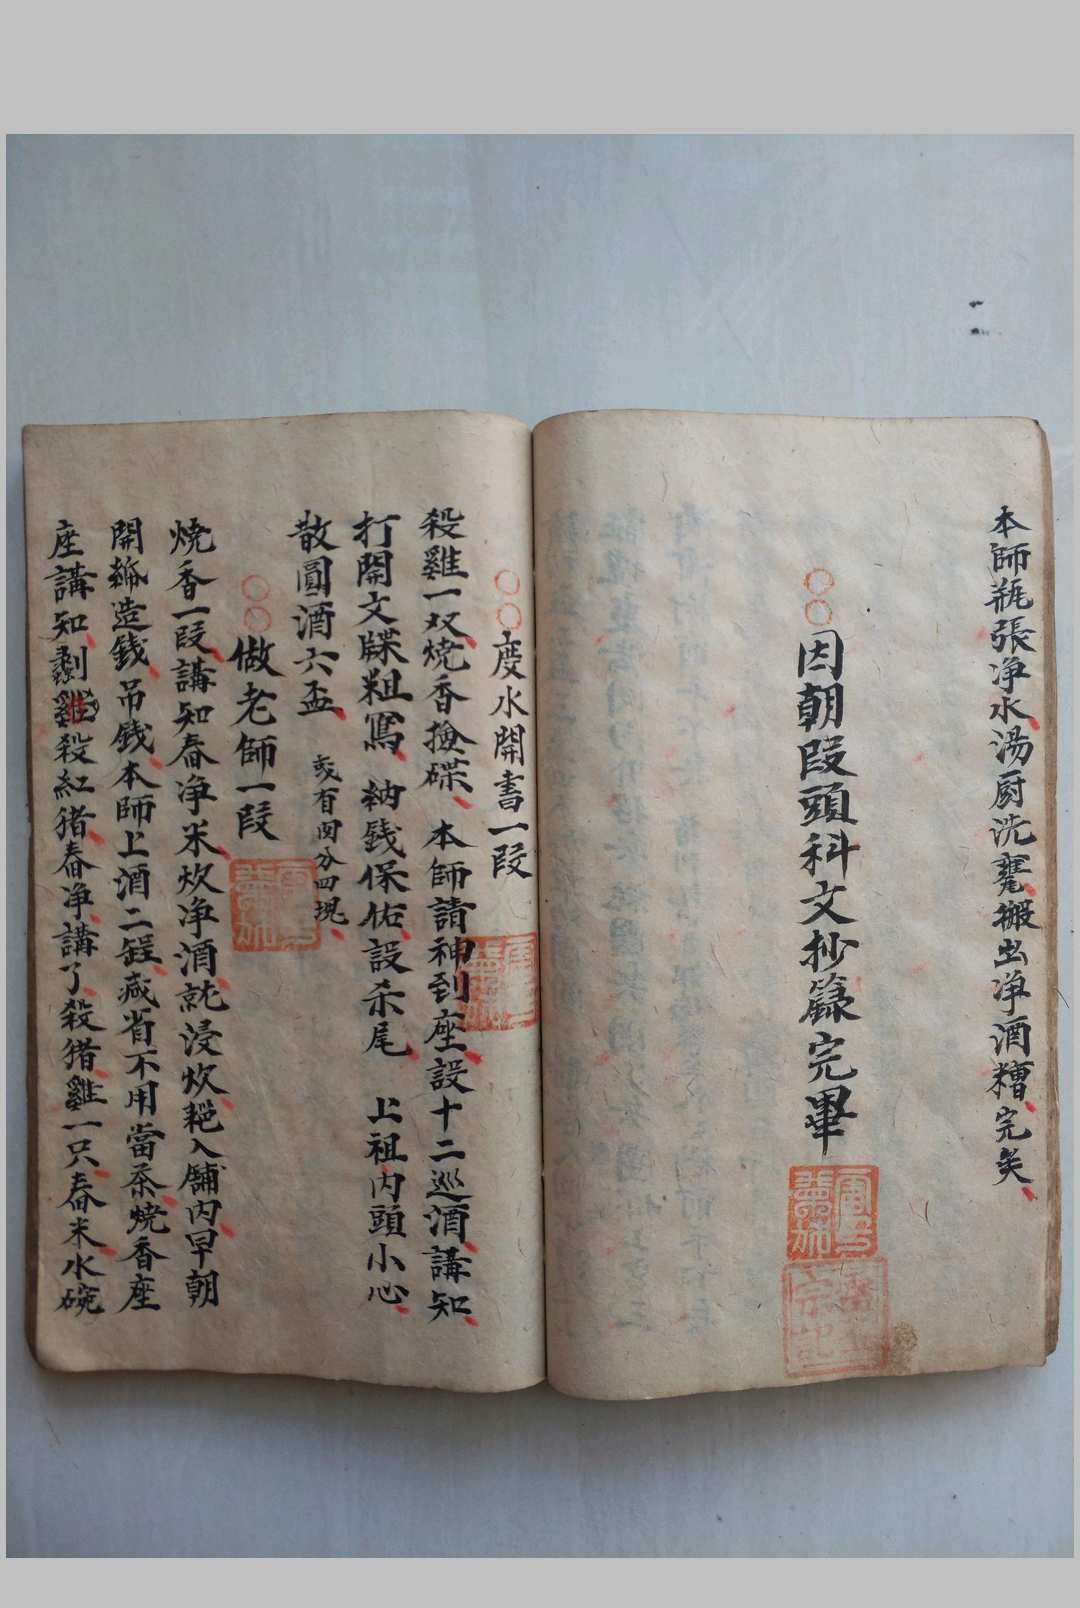 本師瓶張净水湯厨洗甕搬出净酒糟完矣
因朝段頭科文抄籙完畢
度水開書一段
殺雞一双燒香撿碟本師請神到座設十二巡酒講知
打開文牒粗寫納錢保佑設杀尾上祖内頭小心
散圓酒六盃
或有闵分四塊
做老師一段
燒香一段講知舂净米炊净酒就浸炊耙入舖内早朝
開造錢吊錢本師上酒二巡咸省不用當茶燒香座
座講知剥雞殺紅猪舂净講了殺猪雞一只舂米水碗